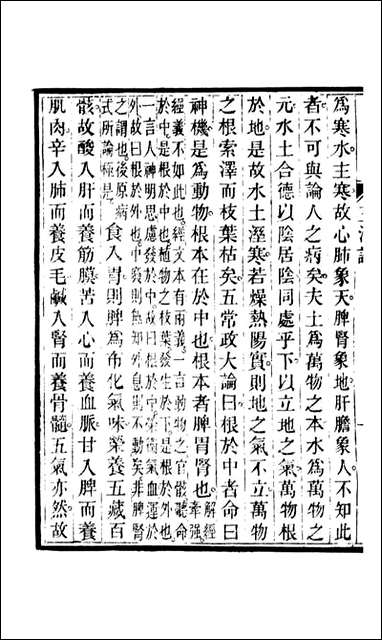 為寒水主寒故心肺象天脾腎象地肝膽象人不知此
者不可與論人之病矣夫土為萬物之本水為萬物之
元水土合德以陰居陰同處乎下以立地之氣萬物根
於地是故水土溼寒若燥熱陽實則地之氣不立萬物
之根索澤而枝葉枯矣五常政大論曰根於中者命曰
神機是為動物根本在於中也根本者脾胃腎也解經牽強
經義不如此也經文本有兩義一言動物之官骸聽命
於中是根於中也植物之枝葉發生於下是根於外也
一言人神明思慮發於中故曰根於中榮衛氣血運於
外故曰根於外也中竅則無知外息則不動矣非脾腎
之謂也後原病
式所論極是食入胃則脾為布化氣味榮養五藏百
骸故酸入肝而養筋膜苦入心而養血脈甘入脾而養
肌肉辛入肺而養皮毛鹹入腎而養骨髓五氣亦然故